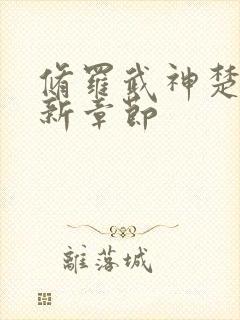 脩羅武神楚
新章節
離落城